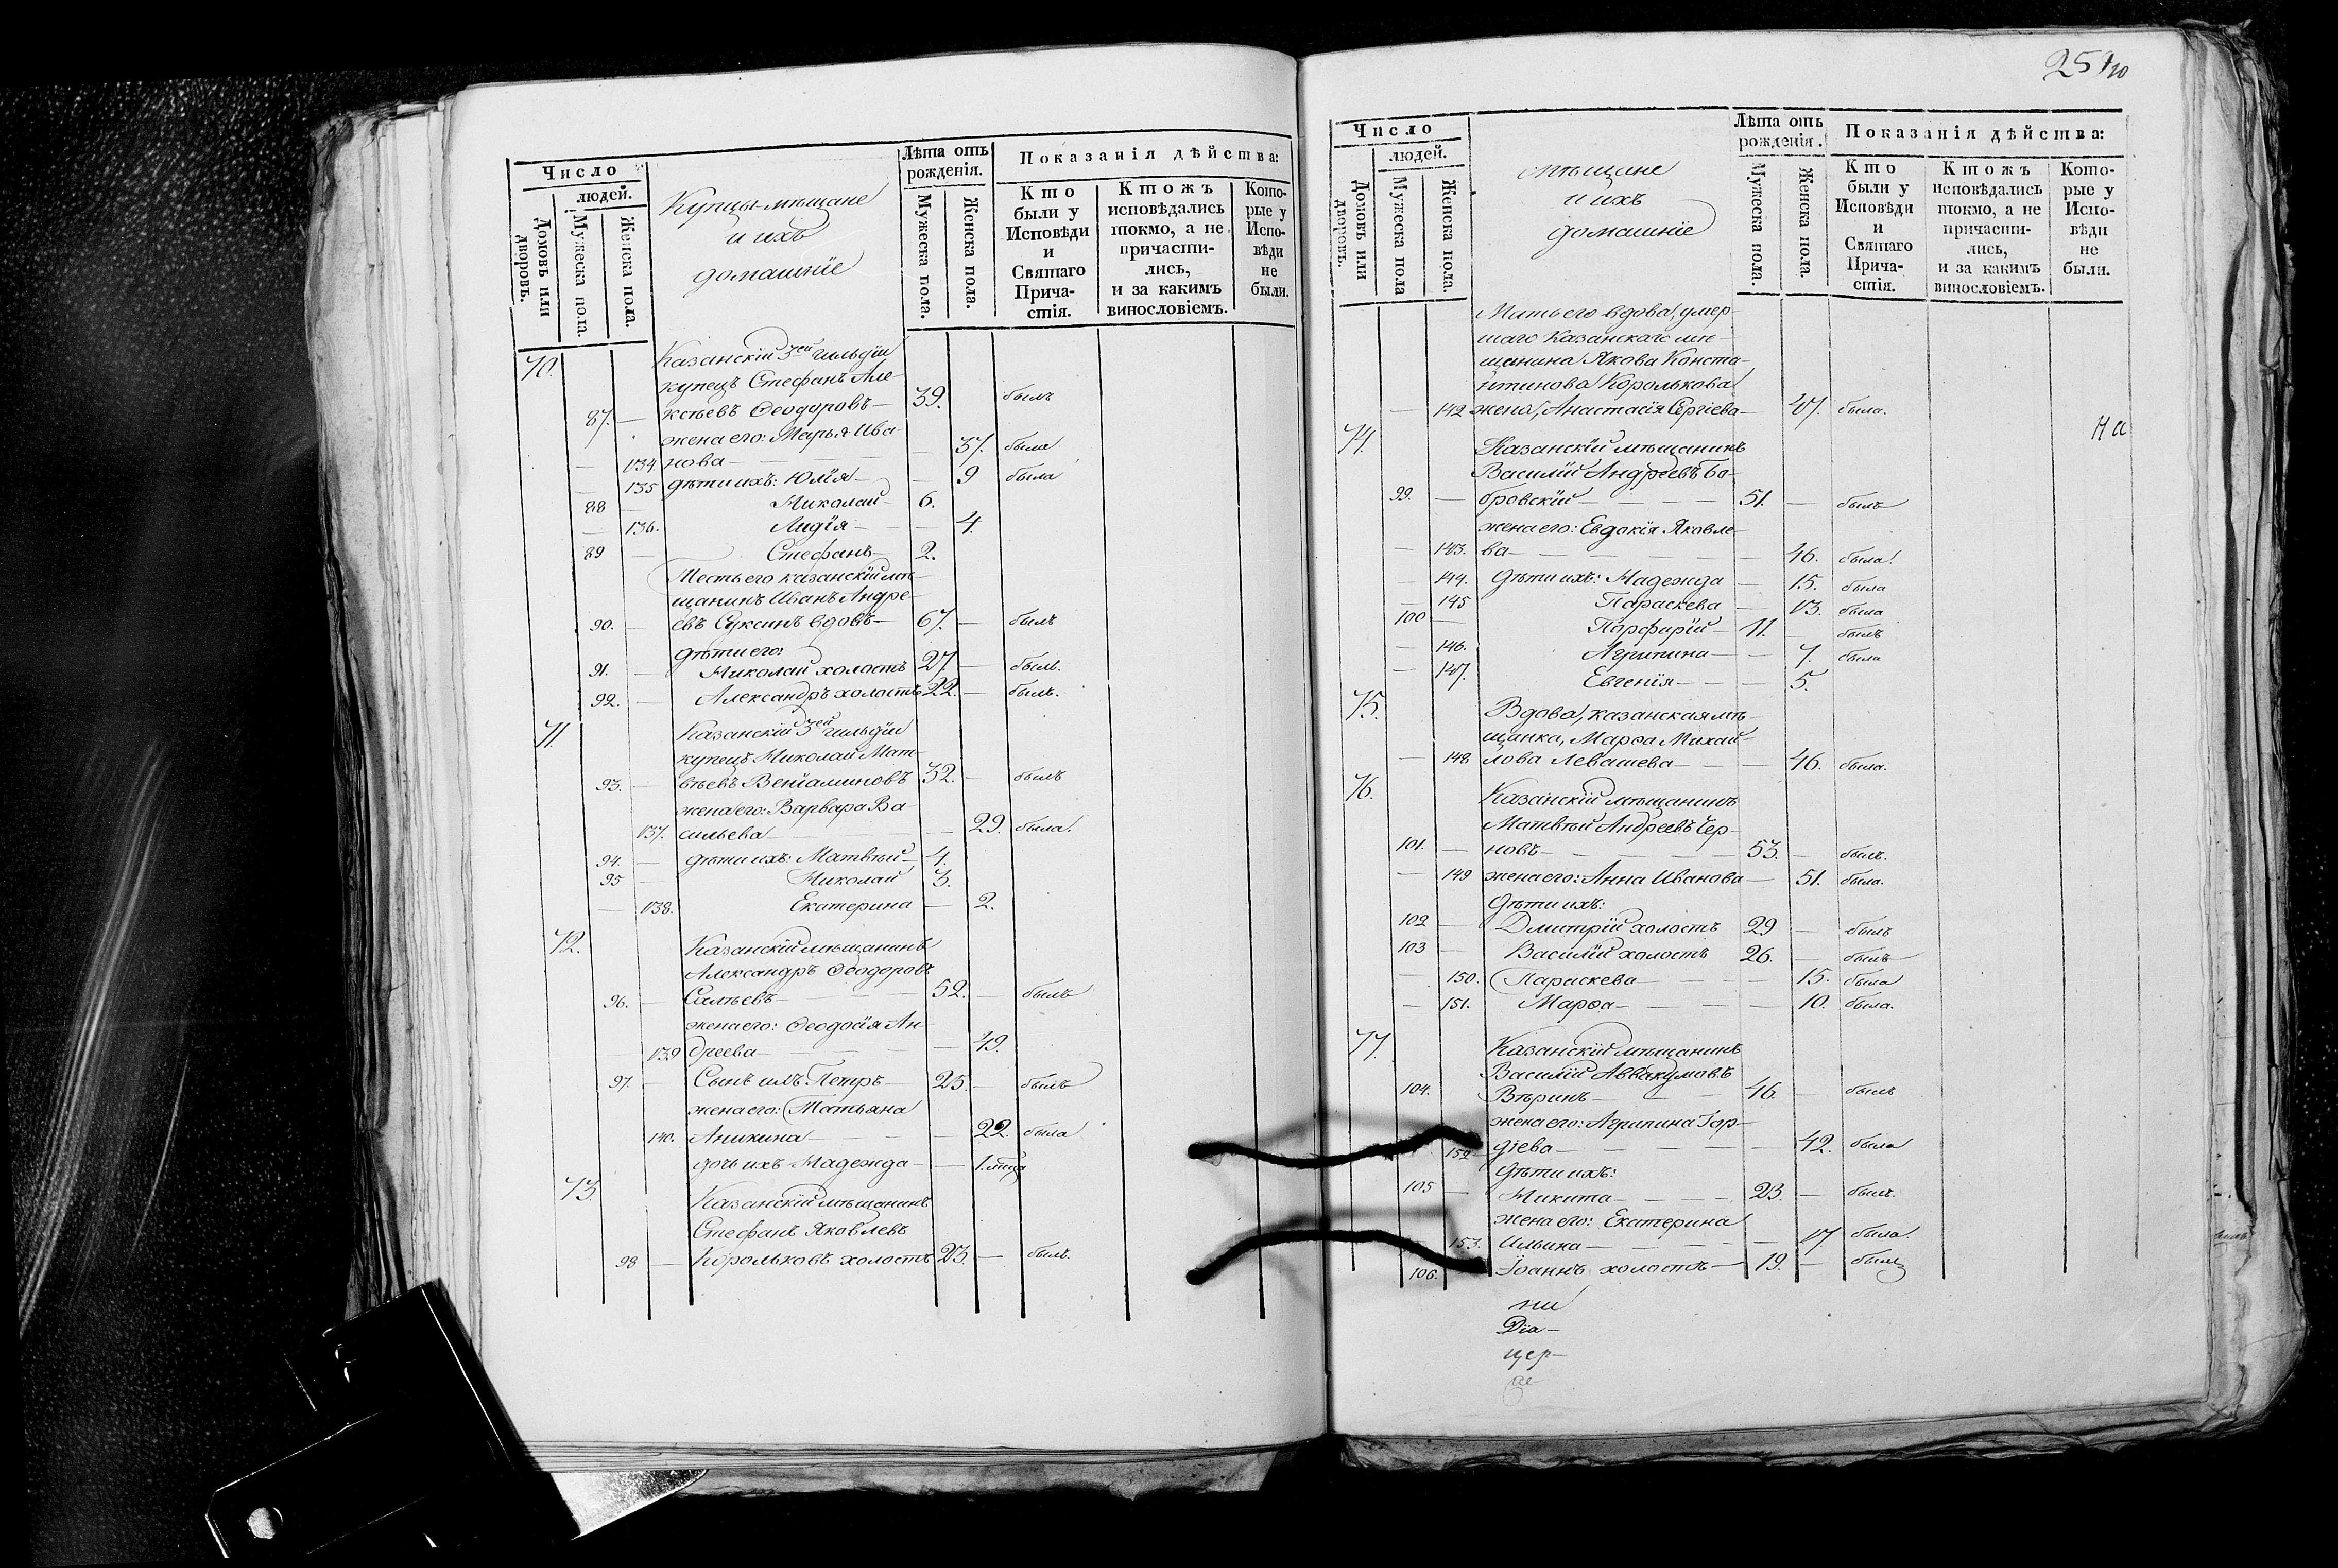 Число
людей.
Домовъ или дворовъ.
Мужеска пола.
Женска пола.
Купцы-мѣщане
и ихъ
домашніе
Лѣта отъ
рожденія.
Мужеска пола.
Женска пола.
Показанія дѣйства:
Кто
были у
Исповѣди
и
Святаго
Прича-
стія.
Ктожъ
исповѣдались
токмо, а не
причасти-
лись,
и за какимъ
винословіемъ.
Кото-
рые у
Испо-
вѣди
не
были.
70.
Казанскій 3ей гильдіи
купецъ Стефанъ Але-
87. — ксѣевъ Ѳеодоровъ — 39. былъ
жена его: Марья Ива-
— 134. нова — 37. была
— 135 дѣти ихъ: Юлія — — 9 была
88 — Николай — 6.
— 136. Лидія — — 4.
89 — Стефанъ — 2.
Тесть его казанскій мѣ-
щанинъ Иванъ Андре-
90. — евъ Суксинъ вдовъ — 67. — былъ
дѣти его:
91. — Николай холостъ 27. — былъ.
92. — Александръ холостъ 22. — былъ.
71.
Казанскій 3ей гильдіи
купецъ Николай Мат-
93. — вѣевъ Веніаминовъ 32. — былъ
жена его: Варвара Ва-
137. сильева — — 29. была.
94. — дѣти ихъ: Матвѣй — 4.
95 — Николай 3.
— 138. Екатерина — 2.
72.
Казанскій мѣщанинъ
Александръ Ѳеодоровъ
96. — Салѣевъ — 52. — былъ
жена его: Ѳеодосія Ан-
139 дреева — — 49.
97. — Сынъ имъ Петръ — 25. — былъ
жена его: Татьяна
140. Аникина — — 22. была
дочь ихъ Надежда — — 1. мѣца
73.
Казанскій мѣщанинъ
Стефанъ Яковлевъ
98 — Корольковъ холостъ 23. — былъ.
251
Число
людей.
Домовъ или дворовъ.
Мужеска пола
Женска пола.
мѣщане
и ихъ
домашніе
Лѣта отъ
рожденія.
Мужеска пола.
Женска пола.
Показанія дѣйства:
Кто
были у
Исповѣди
и
Святаго
Прича-
стія.
Ктожъ
исповѣдались
токмо, а не
причасти-
лись,
и за какимъ
винословіемъ.
Кото-
рые у
Испо-
вѣди
не
были.
Мать его вдова, умер-
шаго Казанскаго мѣ-
щанина Якова Конста-
нтинова Королькова
— 142 жена, Анастасія Сергіева — 47. была.
на
74.
Казанскій мѣщанинъ
Василій Андреевъ Бо-
99. — бровскій — 51. — былъ
жена его: Евдокія Яковле-
— 143. ва — — 46. была.
— 144. Дѣти ихъ: Надежда — 15. была
— 145 Параскева — 13. была
100 — Порфирій — 11. — былъ
— 146. Агрипина — — 7. была
— 147. Евгенія — — 5.
75.
Вдова, казанская мѣ-
щанка, Марѳа Михай-
— 148 лова Левашева — — 46. была.
76.
Казанскій мѣщанинъ
Матвѣй Андреевъ Чер-
101. — новъ — 53. — былъ.
— 149 жена его: Анна Иванова — 51. была.
Дѣти ихъ:
102 — Дмитрій холостъ 29 — былъ
103 — Василій холостъ 26. — былъ
150. Параскева — — 15. была
— 151. Марѳа — — 10. была.
77.
Казанскій мѣщанинъ
Василій Аввакумовъ
104. Вѣринъ — 46. — былъ
жена его: Агрипина Гор-
152 — дѣева — — 42. была
Дѣти ихъ:
105 — Никита — 23. — былъ.
жена его: Екатерина
153. Ильина — — 17. была.
106. Іоаннъ холостъ — 19. — былъ
ни
Діа-
цер-